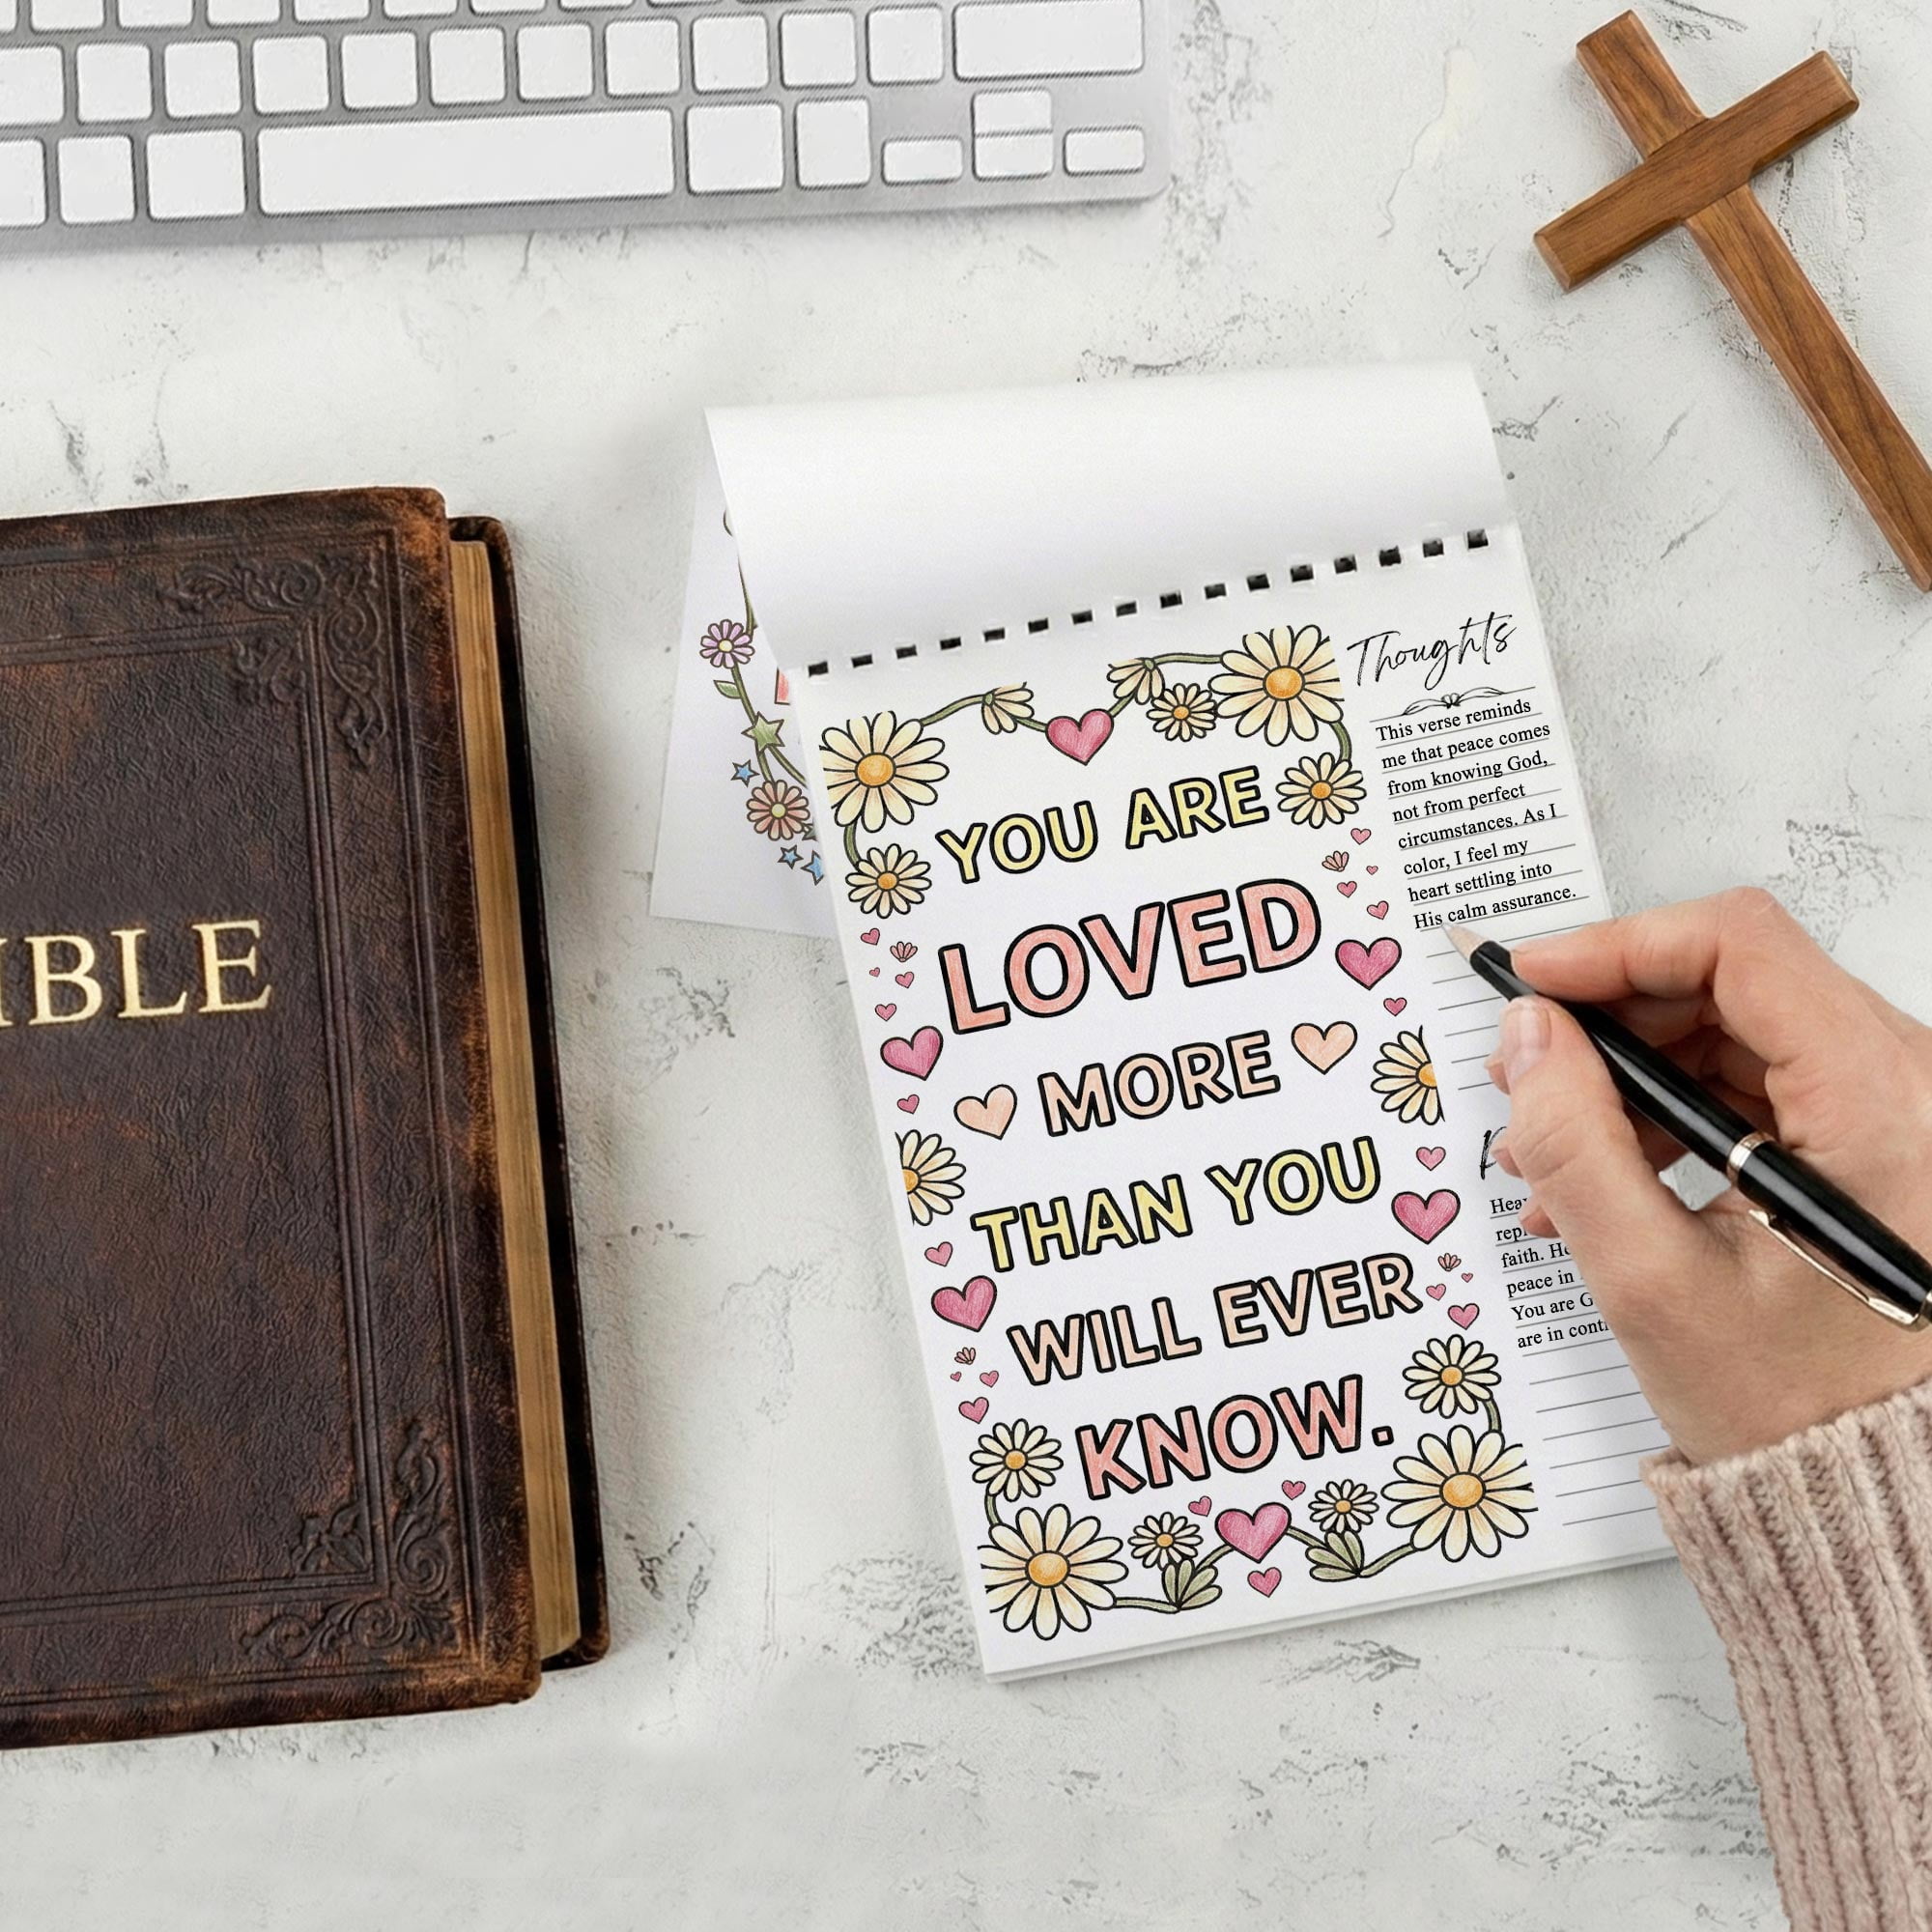 IBLE
YOU ARE
LOVED
MORE
THAN YOU
WILL EVER
KNOW.
Thoughts
This verse reminds
me that peace comes
from knowing God,
not from perfect
circumstances. As I
color, I feel my
heart settling into
His calm assurance.
faith.
peace in
You are G
are in